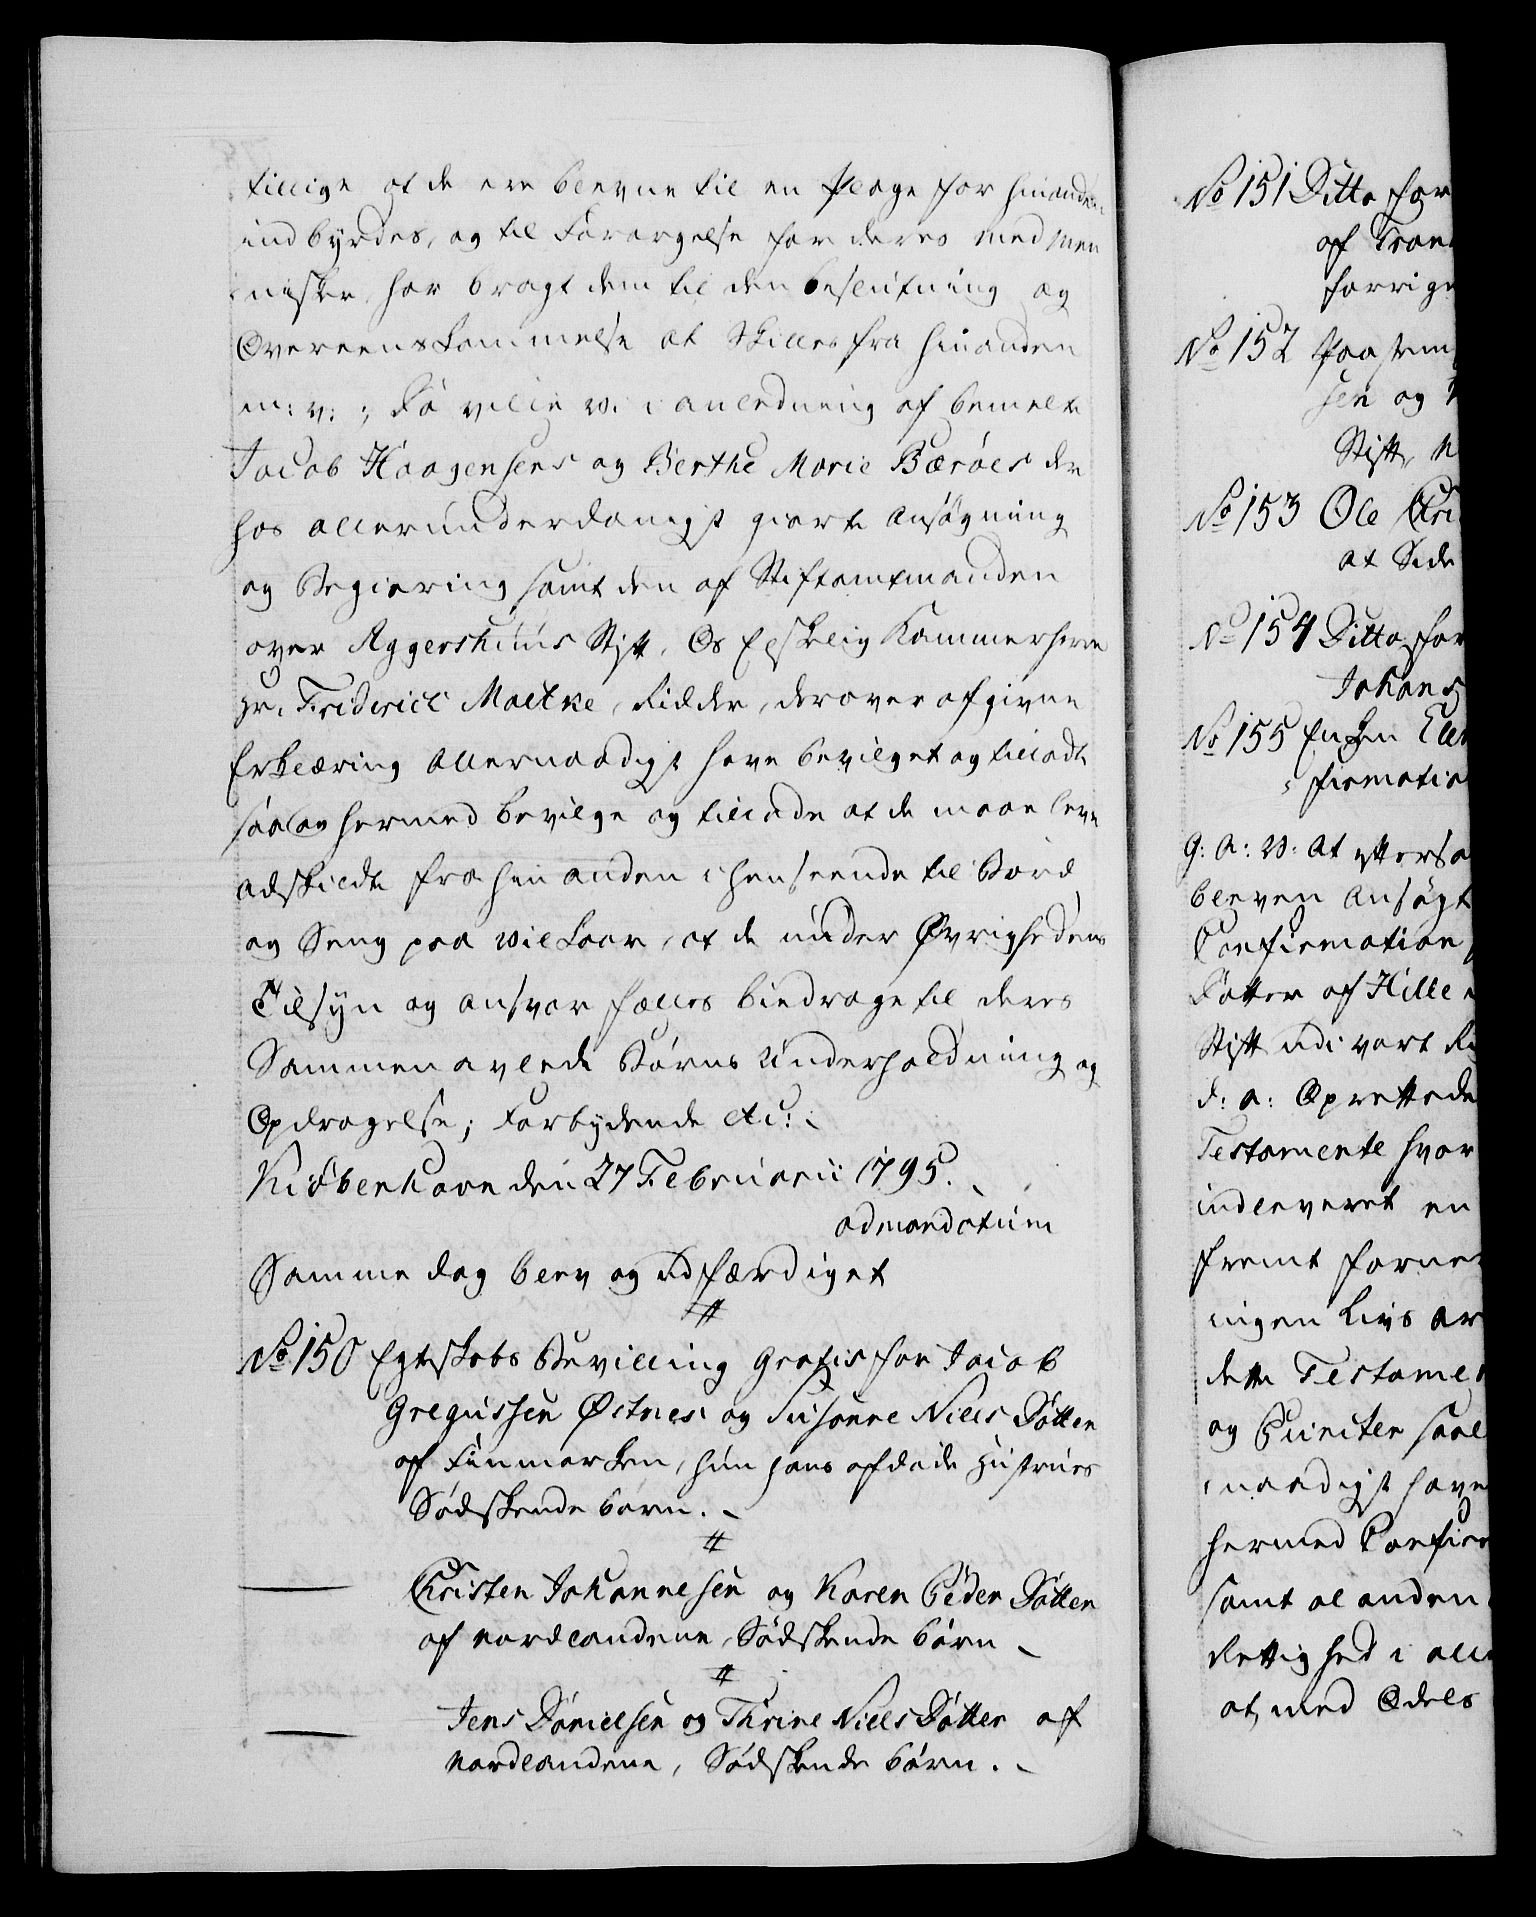 tillige at de ere blevne til en Plage for hinanden
indbyrdes, og til Forargelse for deres med Men
nisker, har bragt dem til den beslutning og
Overeenskommelse at skilles fra hinanden
m: v: ; Da ville vi i anledning af bemelte
Jacob Haagensens og Berthe Marie Bærøes der
hos allerunderdanigst giorte Ansøgning
og Begiering samt den af Stiftamtmanden
over Aggershuus Stift, Os Elskelig Kammerherre
Hr. Friderich Moltke, Ridder, derover afgivne
Erklæring Allernaadigst have bevilget og tilladt
saa og hermed bevilge og tillade at de maae leve
adskildte fra hinanden i henseende til Bord
og Seng paa vilkaar, at de under Øvrighedens
Tilsyn og ansvar fælles bidrage til deres
Sammenavlede Børns Underholdning og
Opdragelse; Forbydende etc:
Kiøbenhavn den 27 Februarii 1795.
ad mandatum
Samme dag blev og udfærdiget
#
No 150 Egteskabs Bevilling Gratis for Jacob
Gregussen Østnes og Susanne Niels Datter
af Finmarken, hun hans afdøde Hustrues
Sødskendebarn.
#
Christen Johannesen og Karen Peder Datter
af Nordlandene, Sødskende Børn
#
Jens Danielsen og Thrine Niels Datter af
Nordlandene, Sødskende Børn.
No 151 Ditto for
af Tron
forrige
No 152
sen og
Stift,
No 153 Ole Chri
at Side
No 154 Ditto for
Johans
No 155
firmation
G: A: V: At
bleven Ansøgt
Confirmation
Datter af Hille
Stift udi vort Ri
d: a: Oprettede
Testamente hvor
indleveret en
fremt forne
ingen Livs ar
dette Testamen
og Puncter saal
naadigst have
hermed Confir
samt al anden
Rettighed i alle
at, med Odels